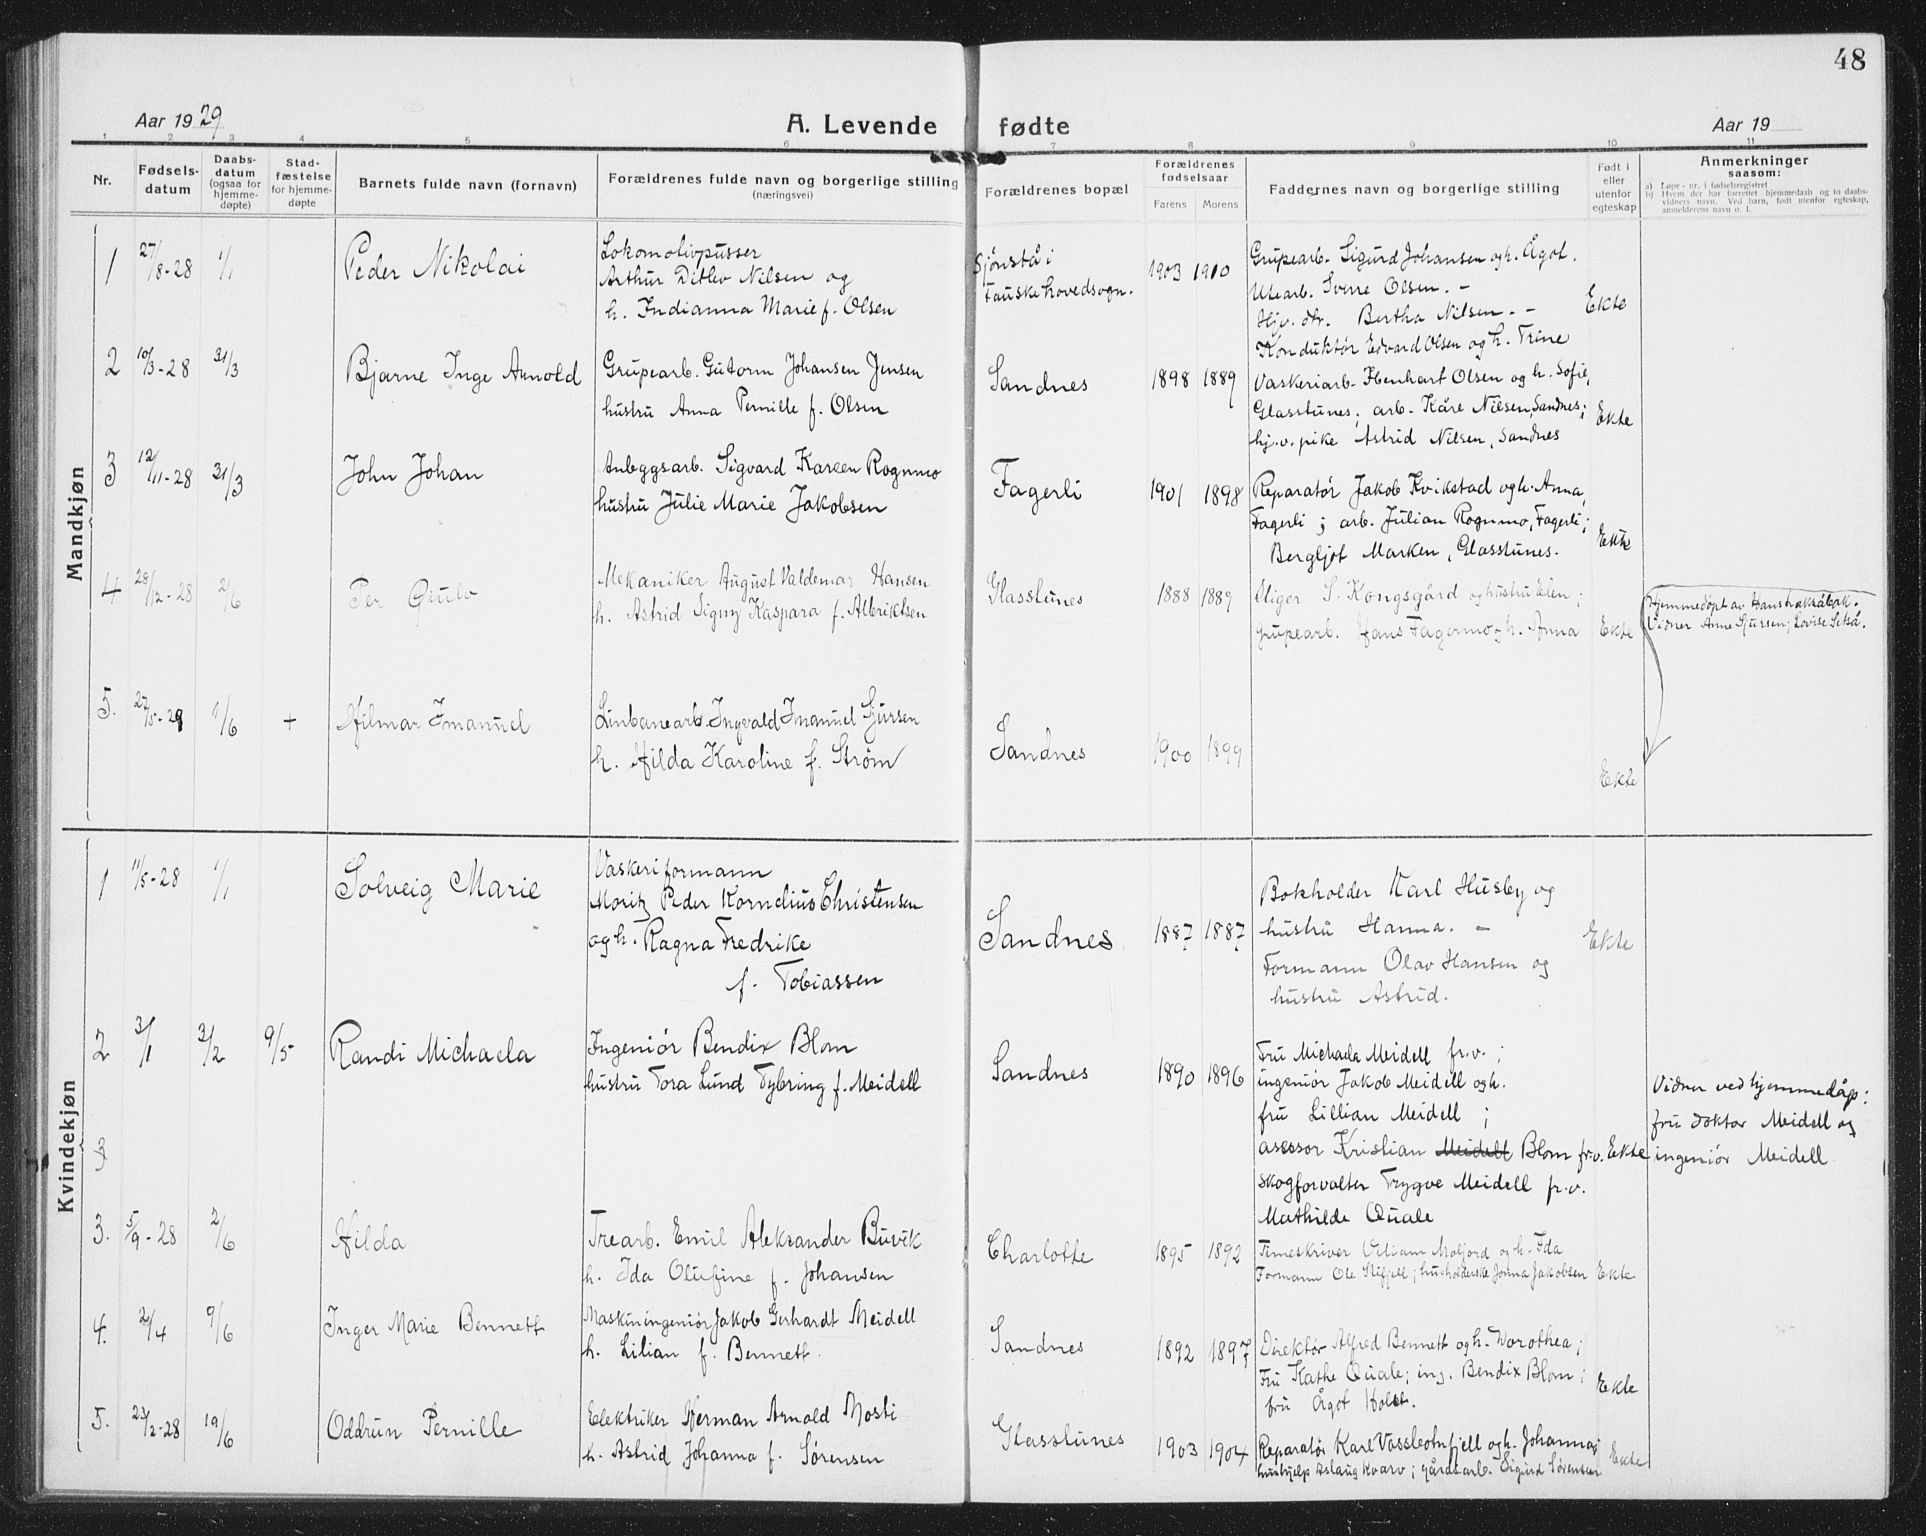 48
Aar 1929
A. Levende fødte
Aar 19
1 2 3 4 5 6 7 8 9 10 11
Nr.
Fødsels-
datum
Daabs-
datum
(ogsaa for
hjemme-
døpte)
Stad-
fæstelse
for hjemme-
døpte
Barnets fulde navn (fornavn)
Forældrenes fulde navn og borgerlige stilling
(næringsvei)
Forældrenes bopæl
Forældrenes
fødselsaar
Farens Morens
Faddernes navn og borgerlige stilling
Født i
eller
utenfor
egteskap
Anmerkninger
saasom:
a) Løpe-nr. i fødselsregistret
b) Hvem der har forrettet hjemmedaab og to daabs-
vidners navn. Ved barn, født utenfor egteskap,
anmelderens navn o. l.
Mandkjøn
1 27/8-28 1/1 Peder Nikolai
Lokomotivpusser
Arthur Ditlev Nilsen og
h. Indianna Marie f. Olsen
Sjønstå i
Fauske hovedsogn.
1903 1910
Grupearb. Sigurd Johansen og h. Ågot.
Utearb. Sverre Olsen. -
Hjv. dtr. Bertha Nilsen. -
Konduktør Edvard Olsen og h. Trine
Ekte
2 10/3-28 31/3 Bjarne Inge Arnold
Grupearb. Gutorm Johansen Jensen
hustru Anna Pernille f. Olsen
Sandnes 1898 1889
Vaskeriarb. Ebenhart Olsen og h. Sofie,
Glasstunes; arb. Kåre Nilsen, Sandnes;
hj.v. pike Astrid Nilsen, Sandnes
Ekte
3 12/11-28 31/3 John Johan
Anleggsarb. Sigvard Kareen Rognmo
hustru Julie Marie Jakobsen
Fagerli 1901 1898
Reparatør Jakob Kvikstad og h. Anna,
Fagerli; arb. Julian Rognmo, Fagerli;
Bergljot Marken, Glasstunes.
Ekte
4 28/12-28 2/6 Per
Mekaniker August Valdemar Hansen
h. Astrid Signy Kaspara f. Albriktsen
Glasstunes 1888 1889
Stiger S. Kongsgård og hustru Elen;
grupearb. Hans Fagermo og h. Anna
Ekte
Hjemmedøpt av Hans
Vidner Anne Sjursen; Lovise Setså.
5. 27/5-29 1/6 + Hilmar Imanuel
Linbanearb. Ingvald Imanuel Sjursen
h. Hilda Karoline f. Strøm
Sandnes 1900 1899
Ekte
Kvindekjøn
1 11/5-28 1/1 Solveig Marie
Vaskeriformann
Moritz Peder Kornelius Christensen
og h. Ragna Fredrike
f. Tobiassen
Sandnes 1887 1887
Bokholder Karl Husby og
hustru Hanna. -
Formann Olav Hansen og
hustru Astrid.
Ekte
2 3/1 3/2 9/5 Randi Michaela
Ingeniør Bendix Blom
hustru Tora Lund Tybring f. Meidell
Sandnes 1890 1896
Fru Michaela Meidell fr.v.;
ingeniør Jakob Meidell og h.
fru Lillian Meidell;
asessor Kristian Meidell Blom fr.v.
skogforvalter Trygve Meidell fr.v.
Mathilde Quale
Ekte
Vidner ved hjemmedåp:
fru doktor Meidell og
ingeniør Meidell
3
3. 5/9-28 2/6 Hilda
Trearb. Emil Aleksander Buvik
h. Ida Olufine f. Johansen
Charlotte 1895 1892
Timeskriver Viliam Moljord og h. Ida
Formann Ole Stifjell; husholderske Jonna Jakobsen
Ekte
4. 2/4 9/6 Inger Marie Bennett
Maskiningeniør Jakob Gerhardt Meidell
h. Lilian f. Bennett.
Sandnes 1892 1897
Direktør Alfred Bennett og h. Dorothea;
Fru Kathe Quale; ing. Bendix Blom;
fru Ågot Holst.
Ekte
5. 23/2-28 19/6 Oddrun Pernille
Elektriker Herman Arnold Mosti
h. Astrid Johanna f. Sørensen
Glasstunes 1903 1904
Reparatør Karl Vassbotnfjell og h. Johanna;
hushjelp Aslaug Kvarv; gårdsarb. Sigurd Sørensen
Ekte